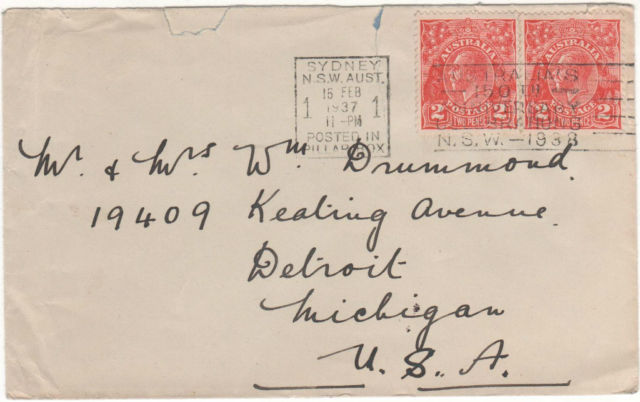 SYDNEY
N.S.W. AUST.
15 FEB
1 1937 1
11 -PM
POSTED IN
PILLAR BOX
AUSTRALIA AUSTRALIA
POSTAGE POSTAGE
2 TWO PENCE 2 TWO PENCE
150TH
N.S.W. - 1938
Mr. & Mrs Wm Drummond.
19409 Keating Avenue.
Detroit
Michigan
U. S. A.